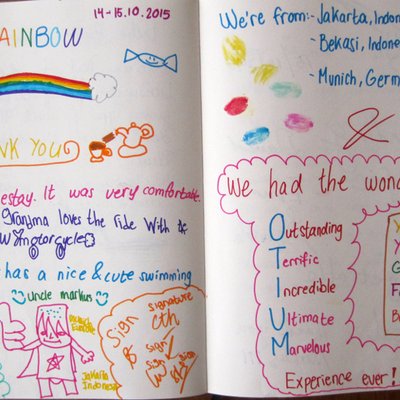 14-15.10.2015
AINBOW
NK YOU
estay. It was very comfortable.
Grandma loves the ride with
motorcycle
has a nice & cute swimming
uncle markus
signature
Sign
sign
sign
Jakarta
Indonesia
We're from:- Jakarta, Indon
- Bekasi, Indone
- Munich, Germ
&
We had the won
Outstanding
Terrific
Incredible
Ultimate
Marvelous
Experience ever!